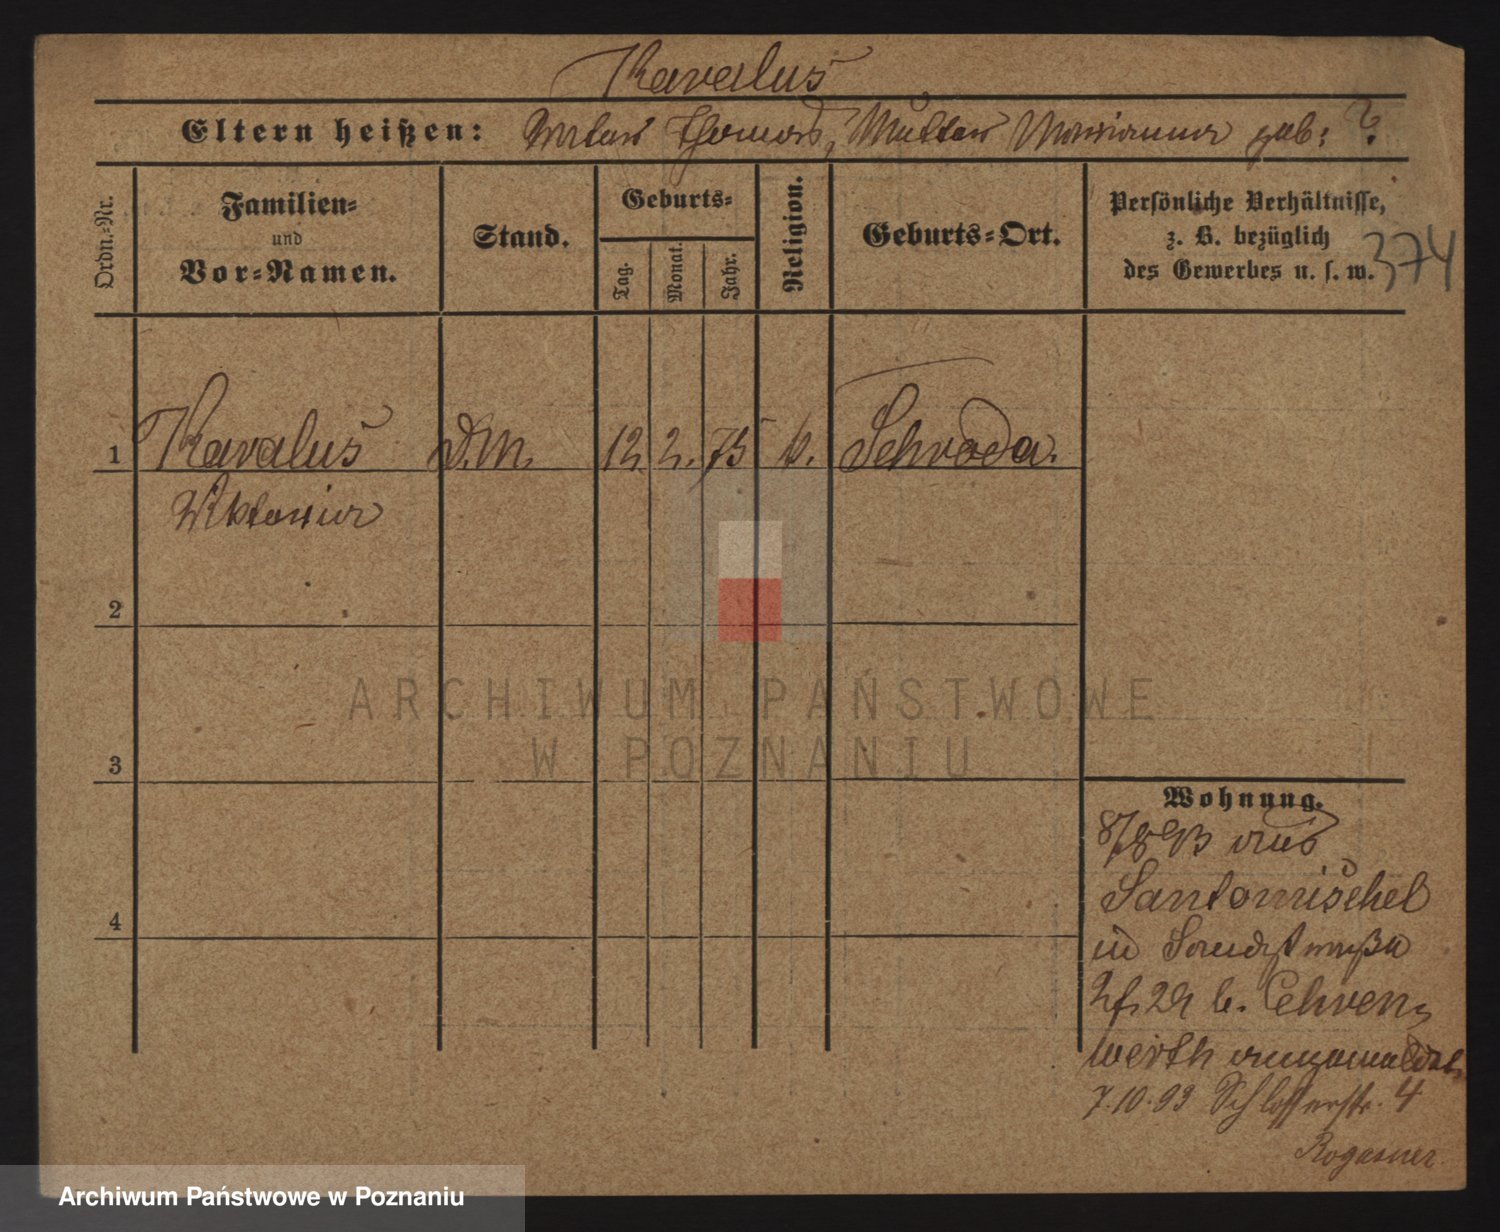 Kavalus
Eltern heißen: Vater Thomas, Mutter Marianna geb: ?
Ordn.-Nr.
Familien-
und
Vor-Namen.
Stand.
Geburts-
Tag.
Monat.
Jahr.
Religion.
Geburts-Ort.
Persönliche Verhältnisse,
z. B. bezüglich
des Gewerbes u. s. w.
374
1 Kavalus D.M. 12 2. 75 k. Schroda.
Viktoria
2
3
4
Wohnung.
8/8 93 aus
Santomischel
in Sandstraße
29 b. Ehren-
werth angemeldet.
7.10.93 Schlosserstr. 4
Rogasner
ARCHIWUM PAŃSTWOWE
W POZNANIU
Archiwum Państwowe w Poznaniu